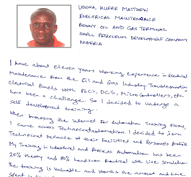 UDOKA KUFRE MATTHEW
ELECTRICAL MAINTENANCE
BONNY OIL AND GAS TERMINAL
SHELL PETROLEUM DEVELOPMENT COMPANY
NIGERIA
I have about Eleven years Working Experience in Electrical
Maintenance from the Oil and Gas Industry. Troubleshooting
Electrical Faults with PLC's, DCS's, Microcontrollers, etc
have been a challenge. So I decided to undergo a
self development training.
When browsing the internet for Automation Training
I came across Technical Automation. I decided to join
Technical because of their facilities and
My Training in Industrial and Process Automation has been
20% theory and 80% hands on Practical with Live Simulation.
The training is Valuable and Worth the amount and time